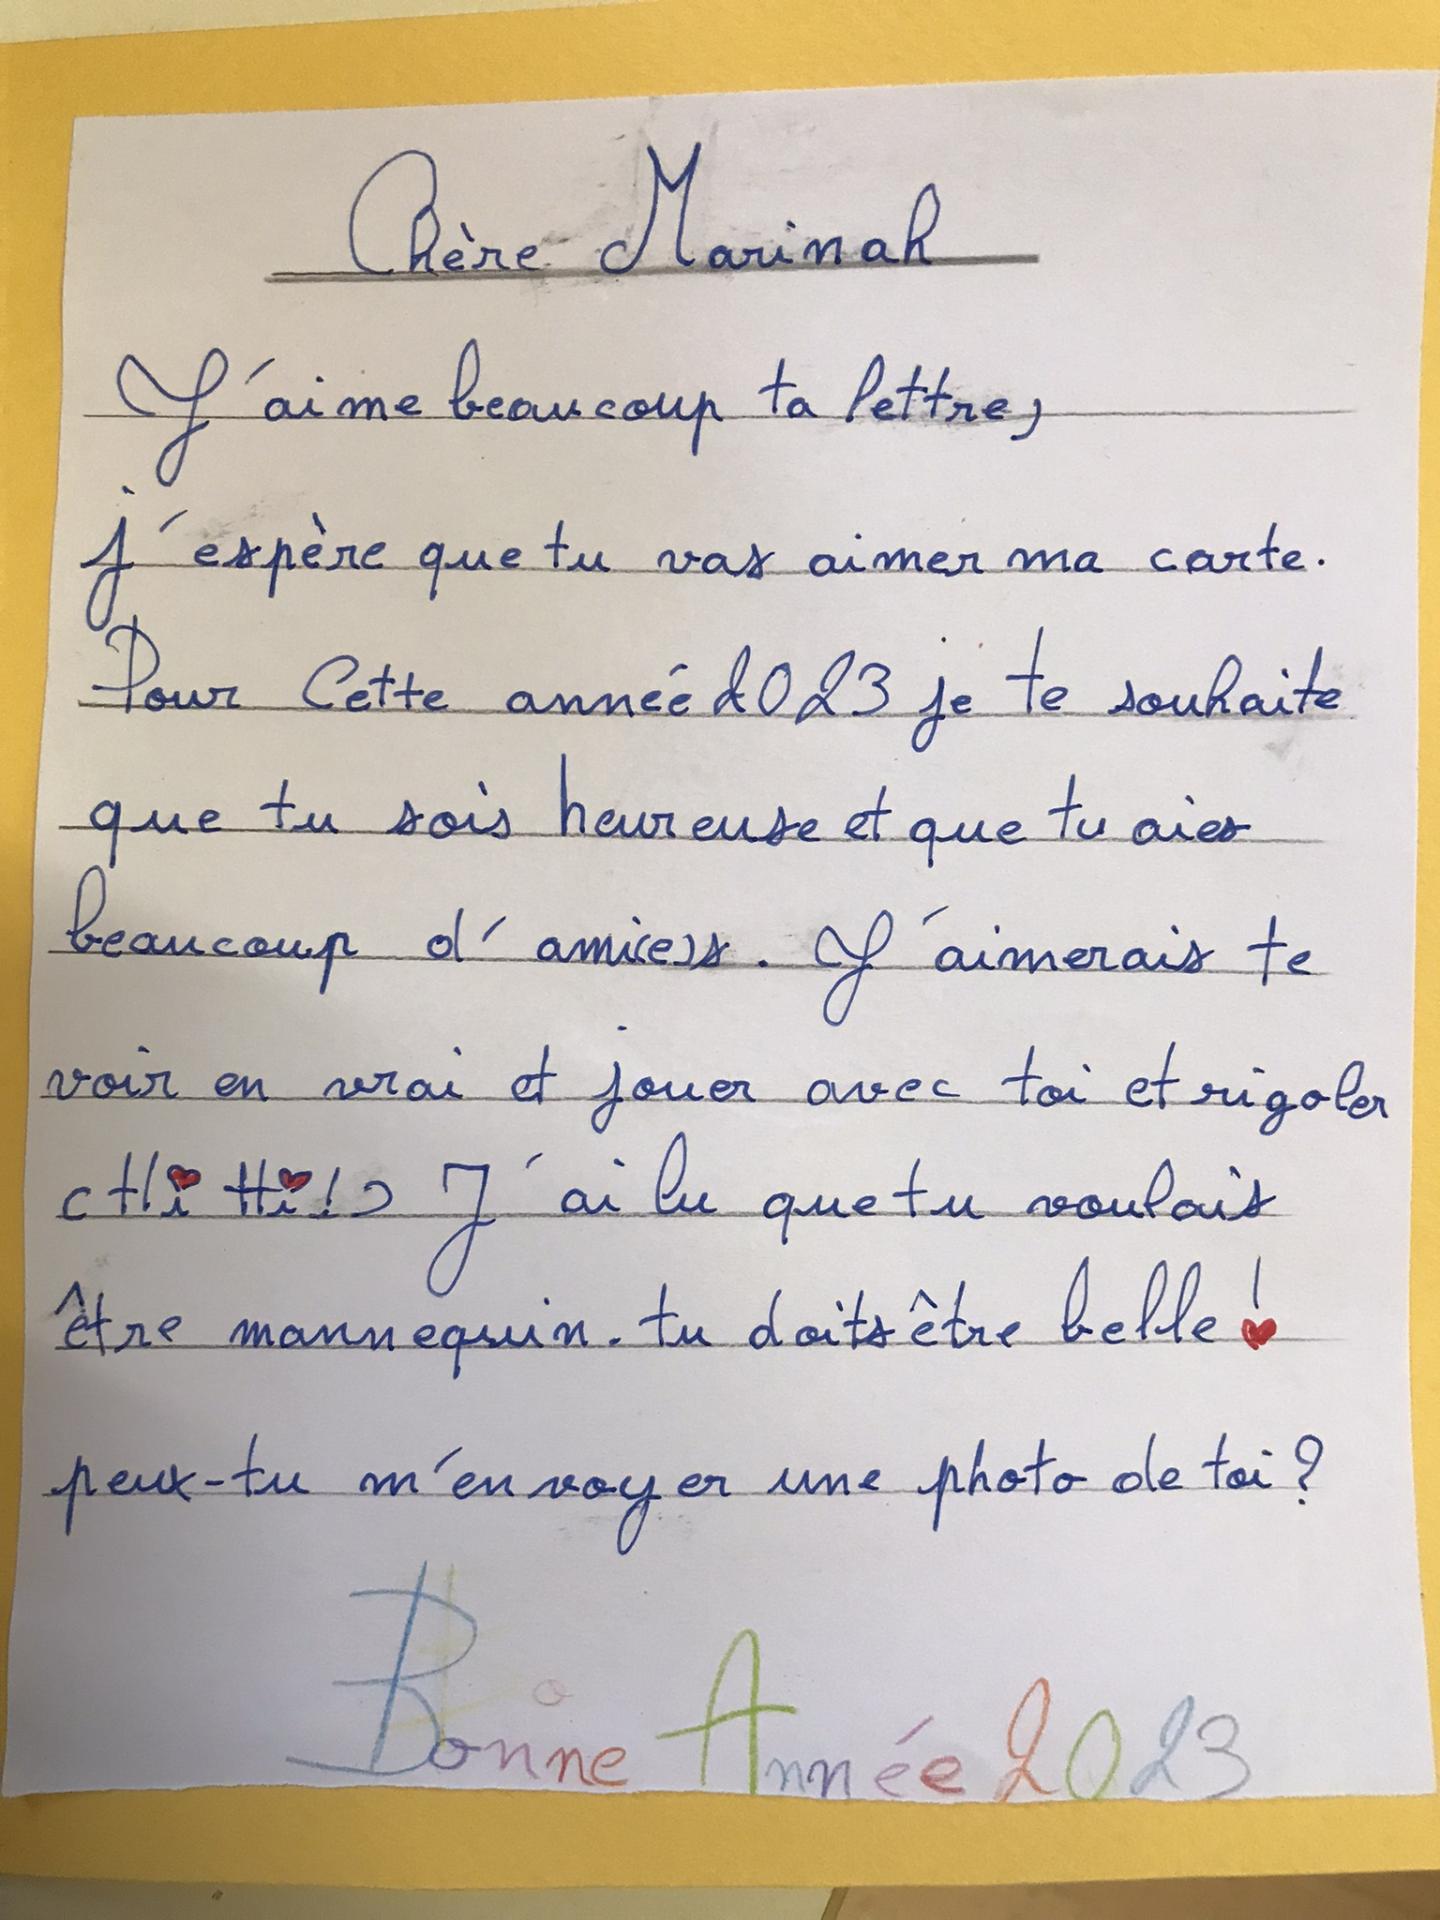 Chère Marinah
J'aime beaucoup ta lettre,
j'espère que tu vas aimer ma carte.
Pour Cette année 2023 je te souhaite
que tu sois heureuse et que tu aies
beaucoup d'ami(e)s. J'aimerais te
voir en vrai et jouer avec toi et rigoler
(Hi Hi!) J'ai lu que tu voulais
être mannequin. tu doits être belle!
peux-tu m'envoyer une photo de toi?
Bonne Année 2023